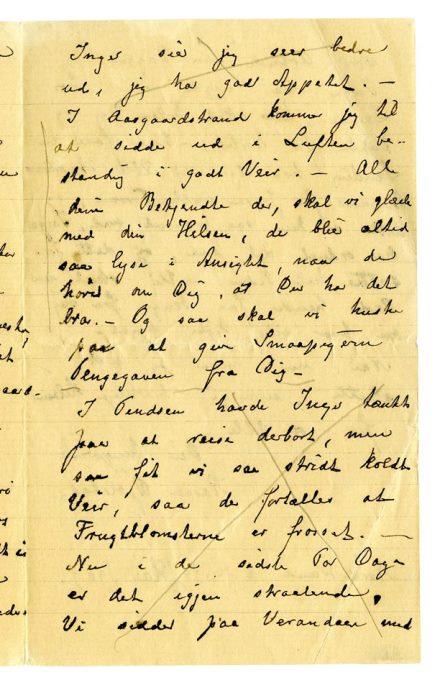 Inger sir jeg seer bedre
ud, jeg har god Appetit. –
I Aasgaardstrand kommer jeg til
at sidde ud i Luften be-
standig i godt Veir. – Alle
dine Bekjendte der, skal vi glæde
med din Hilsen, de blir altid
saa lyse i Ansigt, naar de
hører om Dig, at Du har det
bra. – Og saa skal vi huske
paa at give Smaapigerne
Pengegaven fra Dig –
I Pindsen havde Inger tænkt
paa at reise derbort, men
saa fik vi saa stridt koldt
Veir, saa de fortælles at
Frugtblomsterne er frosset. –
Nu i de sidste Par Dage
er det igjen straalende,
Vi sidder paa Verandaen med